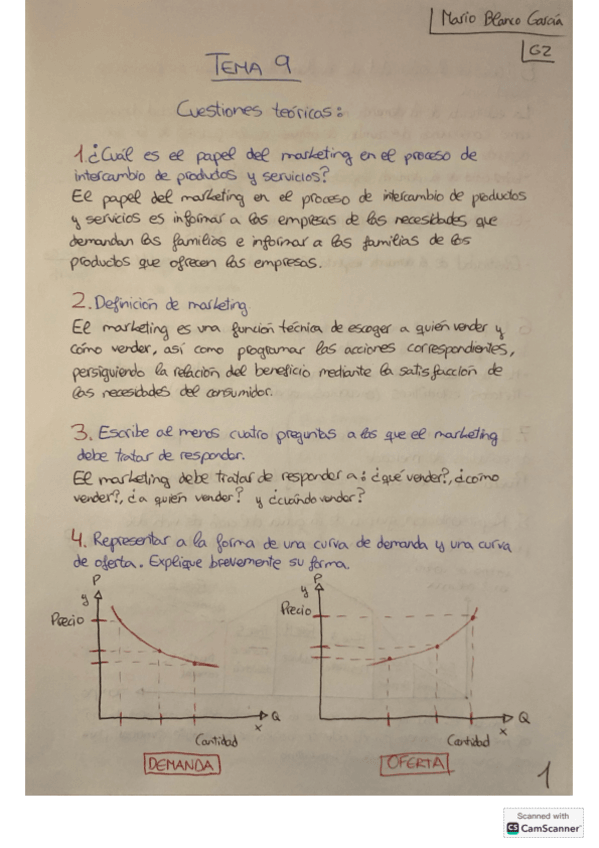 Mario Blanco García
G2
TEMA 9
Cuestiones teóricas:
1. ¿Cuál es el papel del marketing en el proceso de
intercambio de productos y servicios?
El papel del marketing en el proceso de intercambio de productos
y servicios es informar a las empresas de las necesidades que
demandan las familias e informar a las familias de los
productos que ofrecen las empresas.
2. Definición de marketing
El marketing es una función técnica de escoger a quién vender y
cómo vender, así como programar las acciones correspondientes,
persiguiendo la relación del beneficio mediante la satisfacción de
las necesidades del consumidor.
3. Escribe al menos cuatro preguntas a las que el marketing
debe tratar de responder.
El marketing debe tratar de responder a: ¿qué vender?, ¿cómo
vender?, ¿a quién vender? y ¿cuándo vender?
4. Representar a la forma de una curva de demanda y una curva
de oferta. Explique brevemente su forma.
P
y
Precio
Q
x
Cantidad
DEMANDA
P
y
Precio
Q
x
Cantidad
OFERTA
1
Scanned with
CS CamScanner